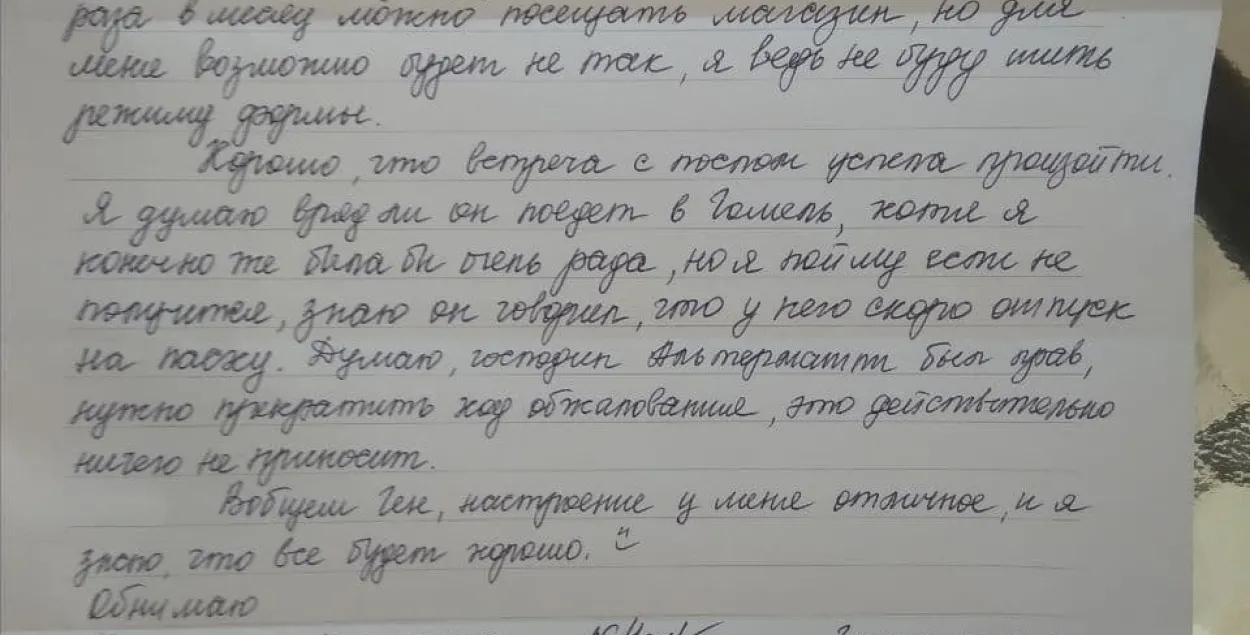 раза в месяц можно посещать магазин, но для
меня возможно будет не так, я ведь не буду шить
режиму формы.
Хорошо, что встреча с послом успела произойти.
Я думаю вряд ли он поедет в Гомель, хотя я
конечно же была бы очень рада, но я пойму если не
получится, знаю он говорил, что у него скоро отпуск
на пасху. Думаю, господин Альтерматт был прав,
нужно прекратить ход обжалование, это действительно
ничего не приносит.
Вобщем Ген, настроение у меня отличное, и я
знаю, что все будет хорошо.
Обнимаю